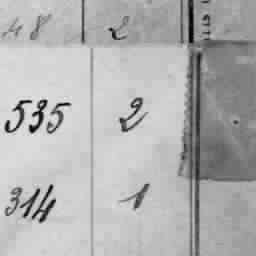 48 2
535 2
314 1